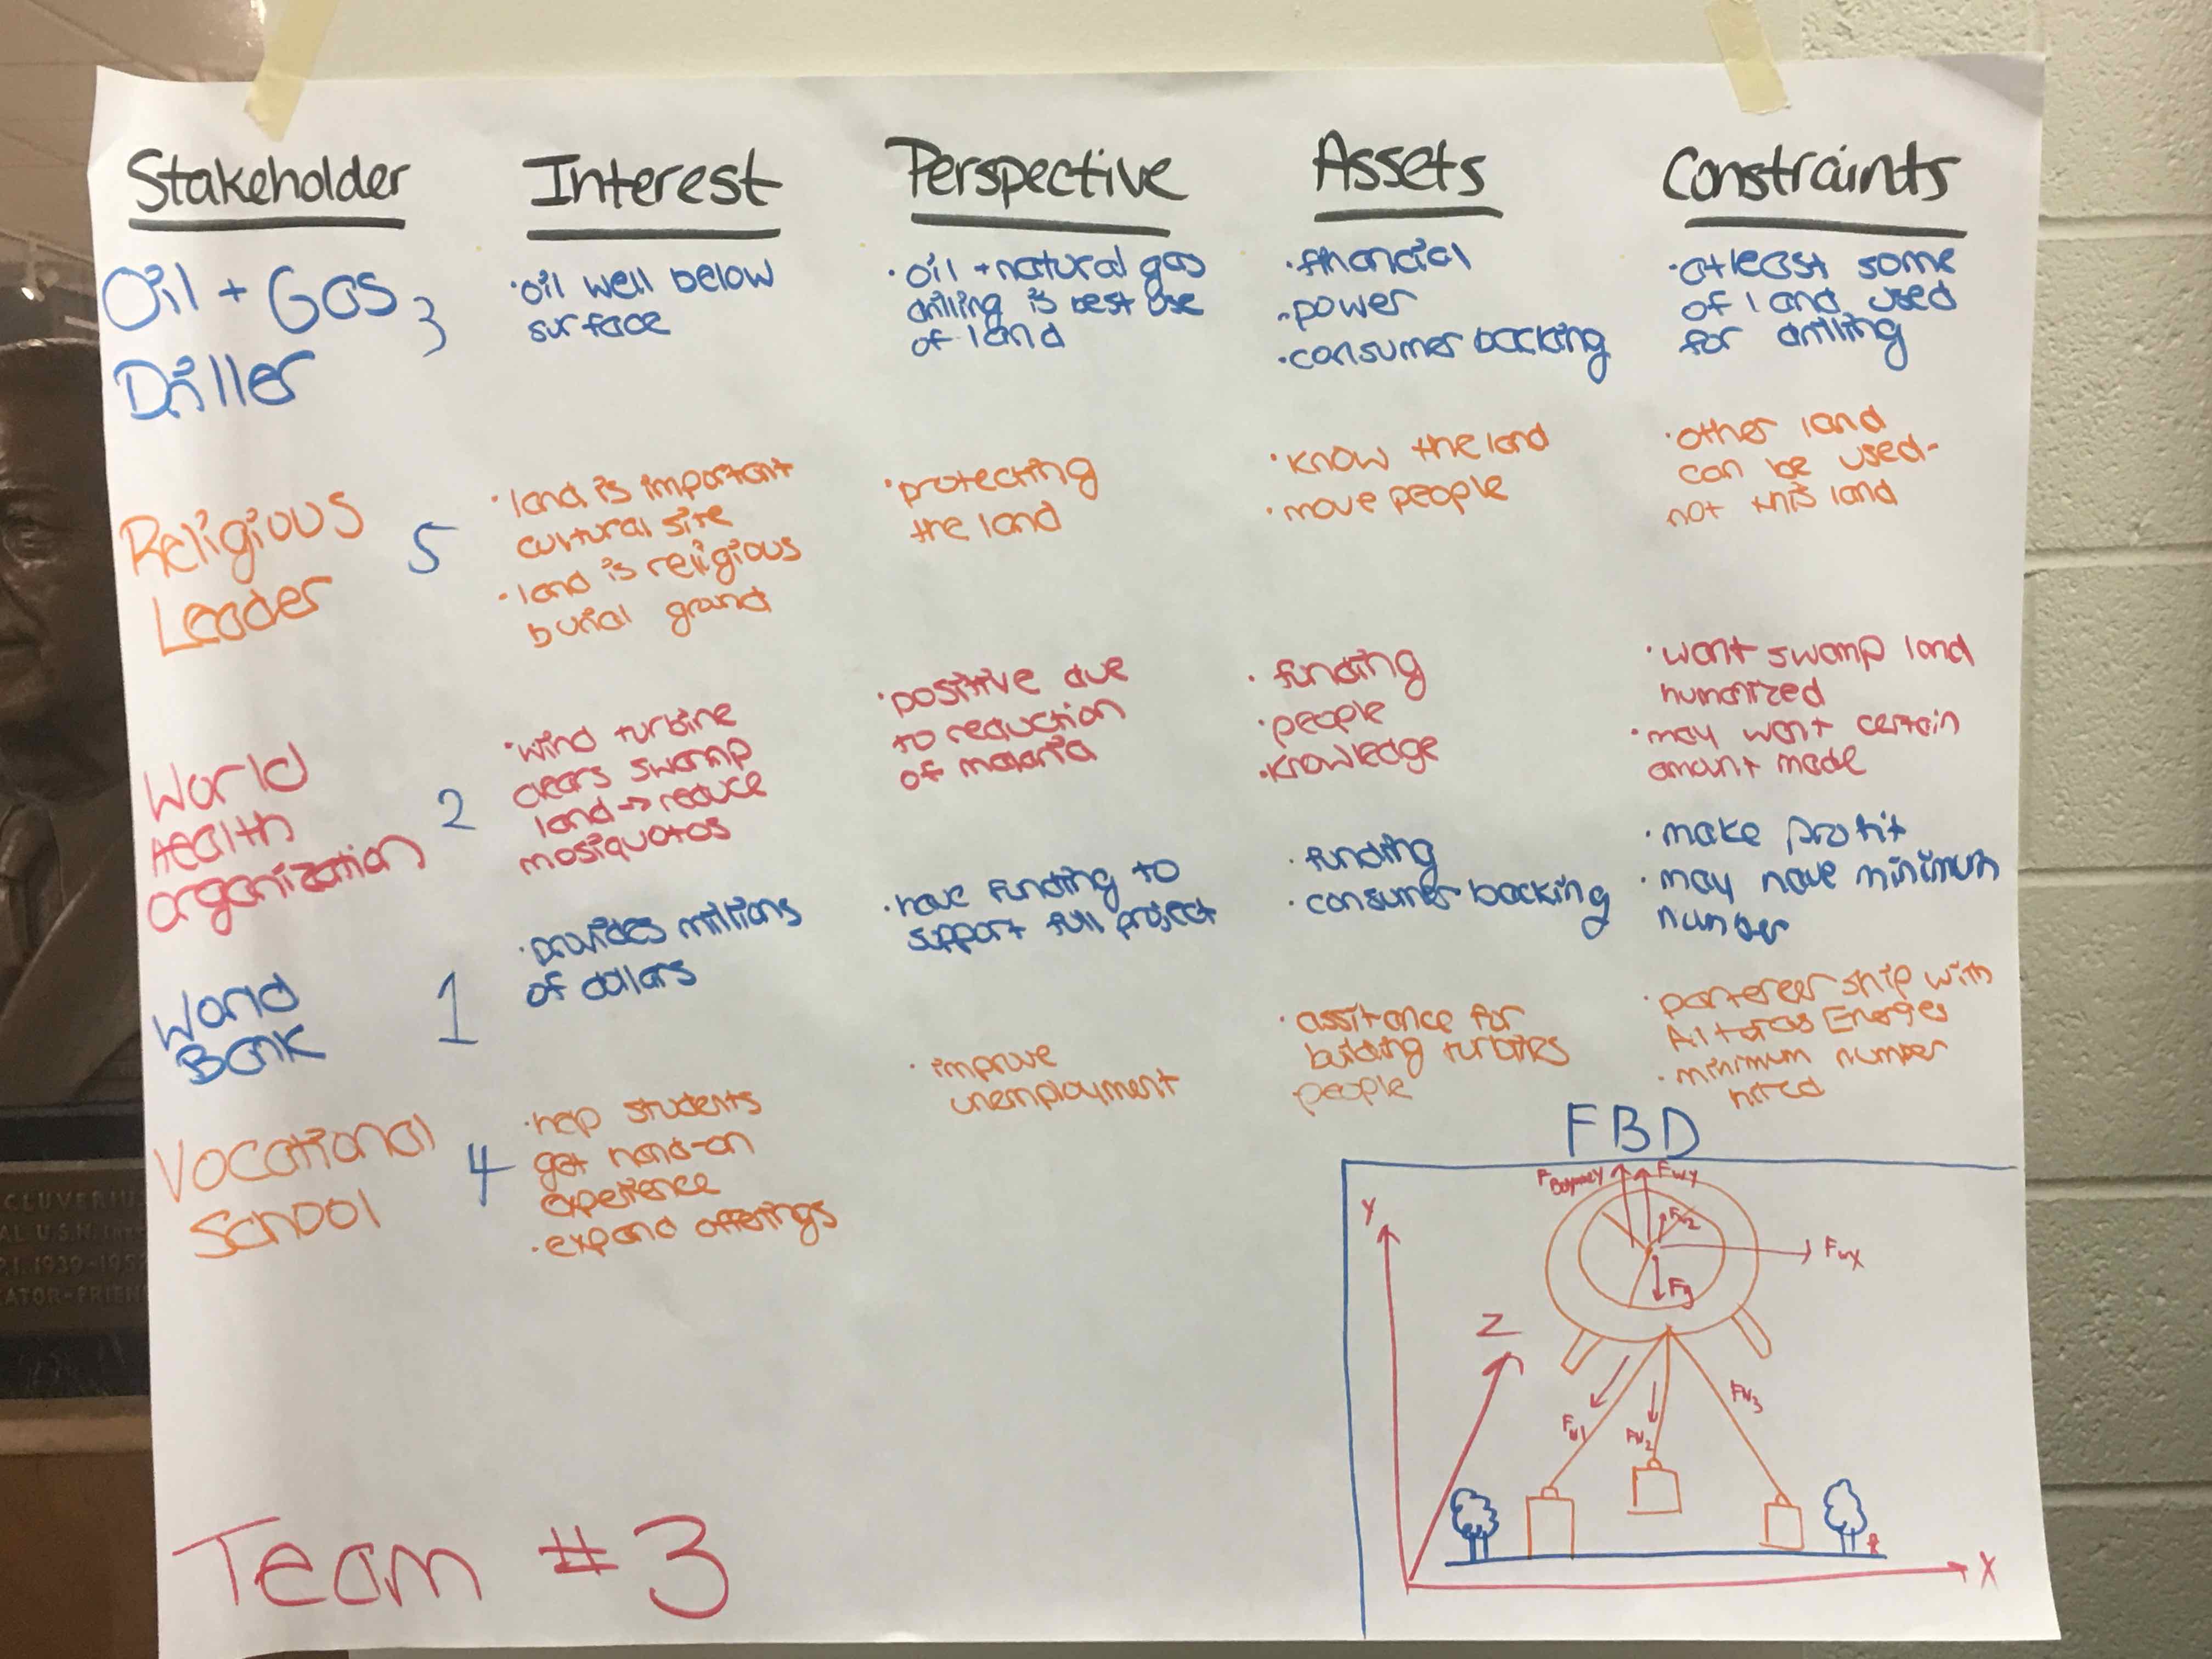 Stakeholder
Interest
Perspective
Assets
Constraints
Oil + Gas 3
Driller
·oil well below
surface
·oil + natural gas
drilling is best use
of land
·financial
·power
·consumer backing
·atleast some
of land used
for drilling
Religious
Leader
5
·land is important
cultural site
·land is religious
burial ground
·protecting
the land
·know the land
·move people
·other land
can be used-
not this land
World
Health
organization
2
·wind turbine
clears swamp
land → reduce
mosiquotos
·positive due
to reduction
of malaria
·funding
·people
·knowledge
·want swamp land
humanized
·may want certain
amount made
World
Bank
1
·provides millions
of dollars
·have funding to
support full project
·funding
·consumer backing
·make profit
·may have minimum
number
Vocational
School
4
·help students
get hand-on
experience
·expand offerings
·improve
unemployment
·assitance for
building turbines
people
·partereership with
Altaros Energies
·minimum number
hired
FBD
FBuoyancy
Fwy
Fwz
Fwx
Fg
Y
Z
X
FW1
FW2
FW3
Team #3
CLUVERI
AL U.S.N.
1939-195
ATOR-FRIEN